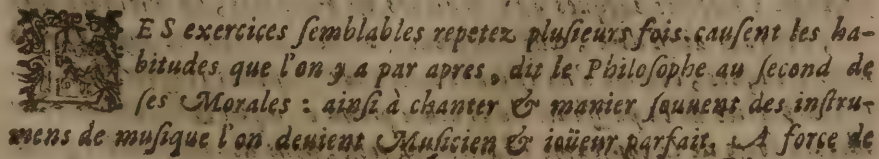 LES exercices ſemblables repetez pluſieurs fois cauſent les ha-
bitudes que l'on y a par apres, dit le Philoſophe au ſecond de
ſes Morales : ainſi à chanter & manier ſouuent des inſtru-
mens de muſique l'on deuient Muſicien & ioüeur parfait. A force de